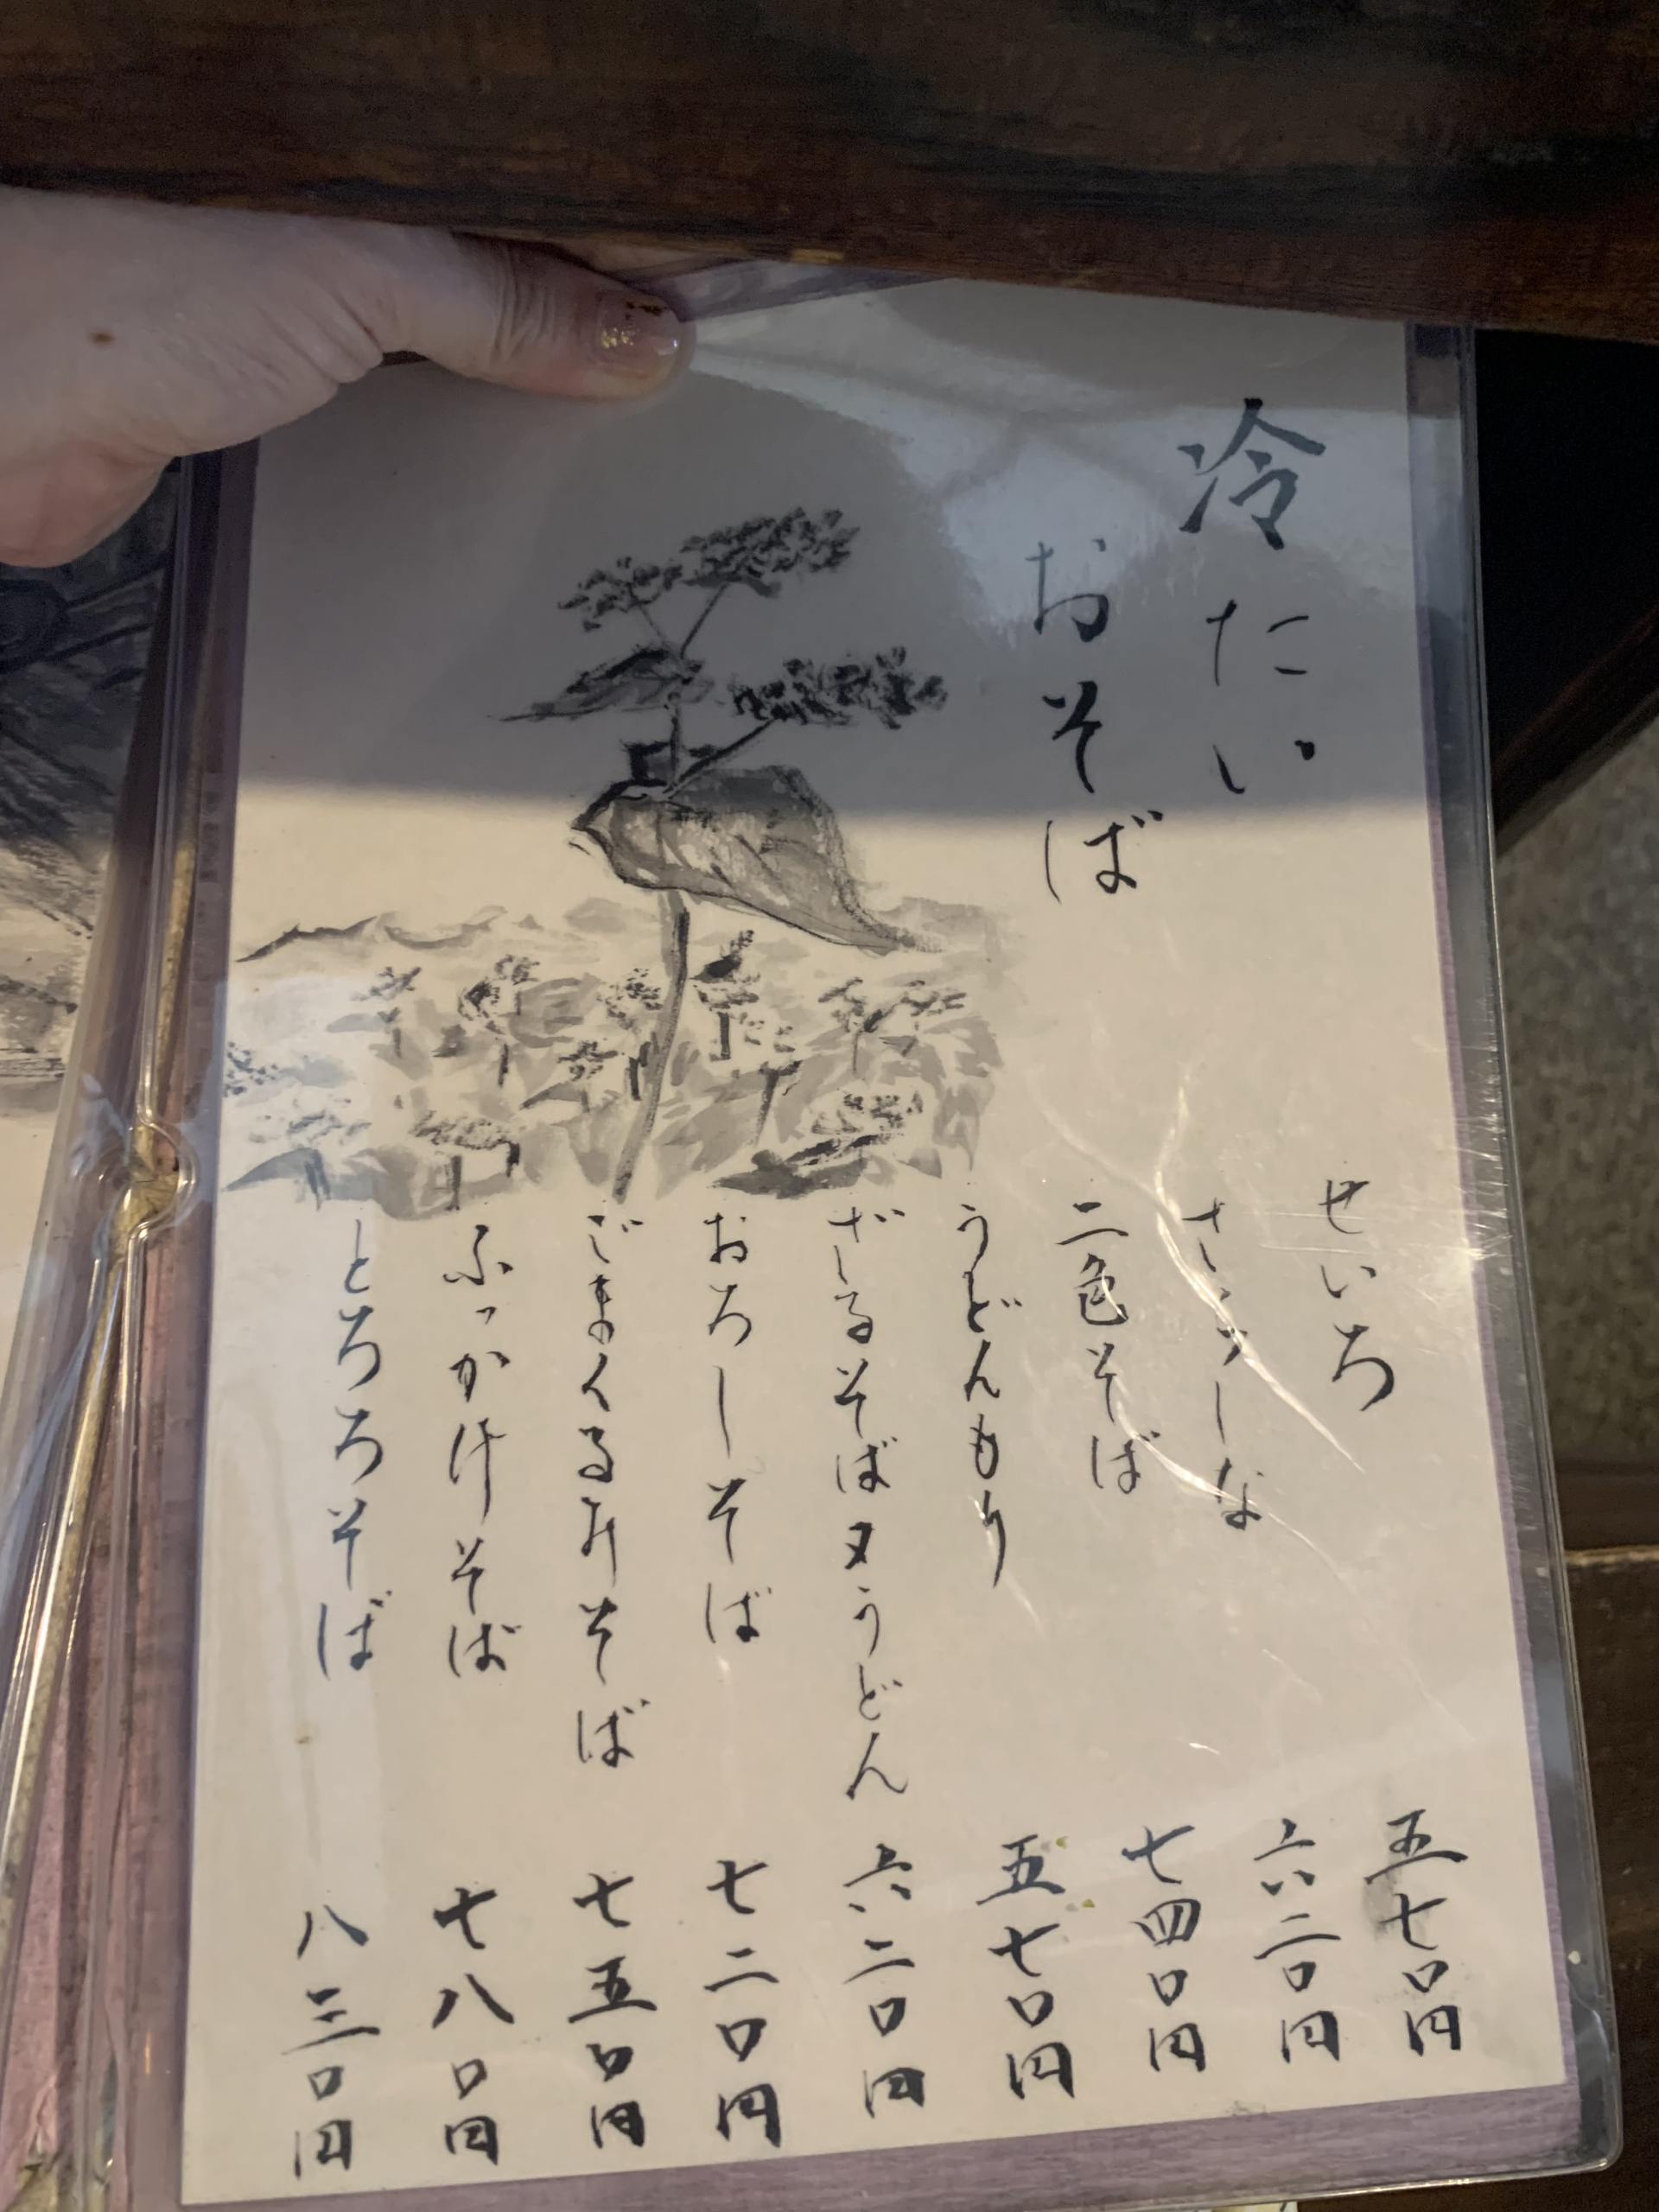 冷たい
おそば
せいろ 五七〇円
さらしな 六二〇円
二色そば 七四〇円
うどんもり 五七〇円
ざるそば又うどん 六二〇円
おろしそば 七二〇円
ごまくるみそば 七五〇円
ぶっかけそば 七八〇円
とろろそば 八三〇円